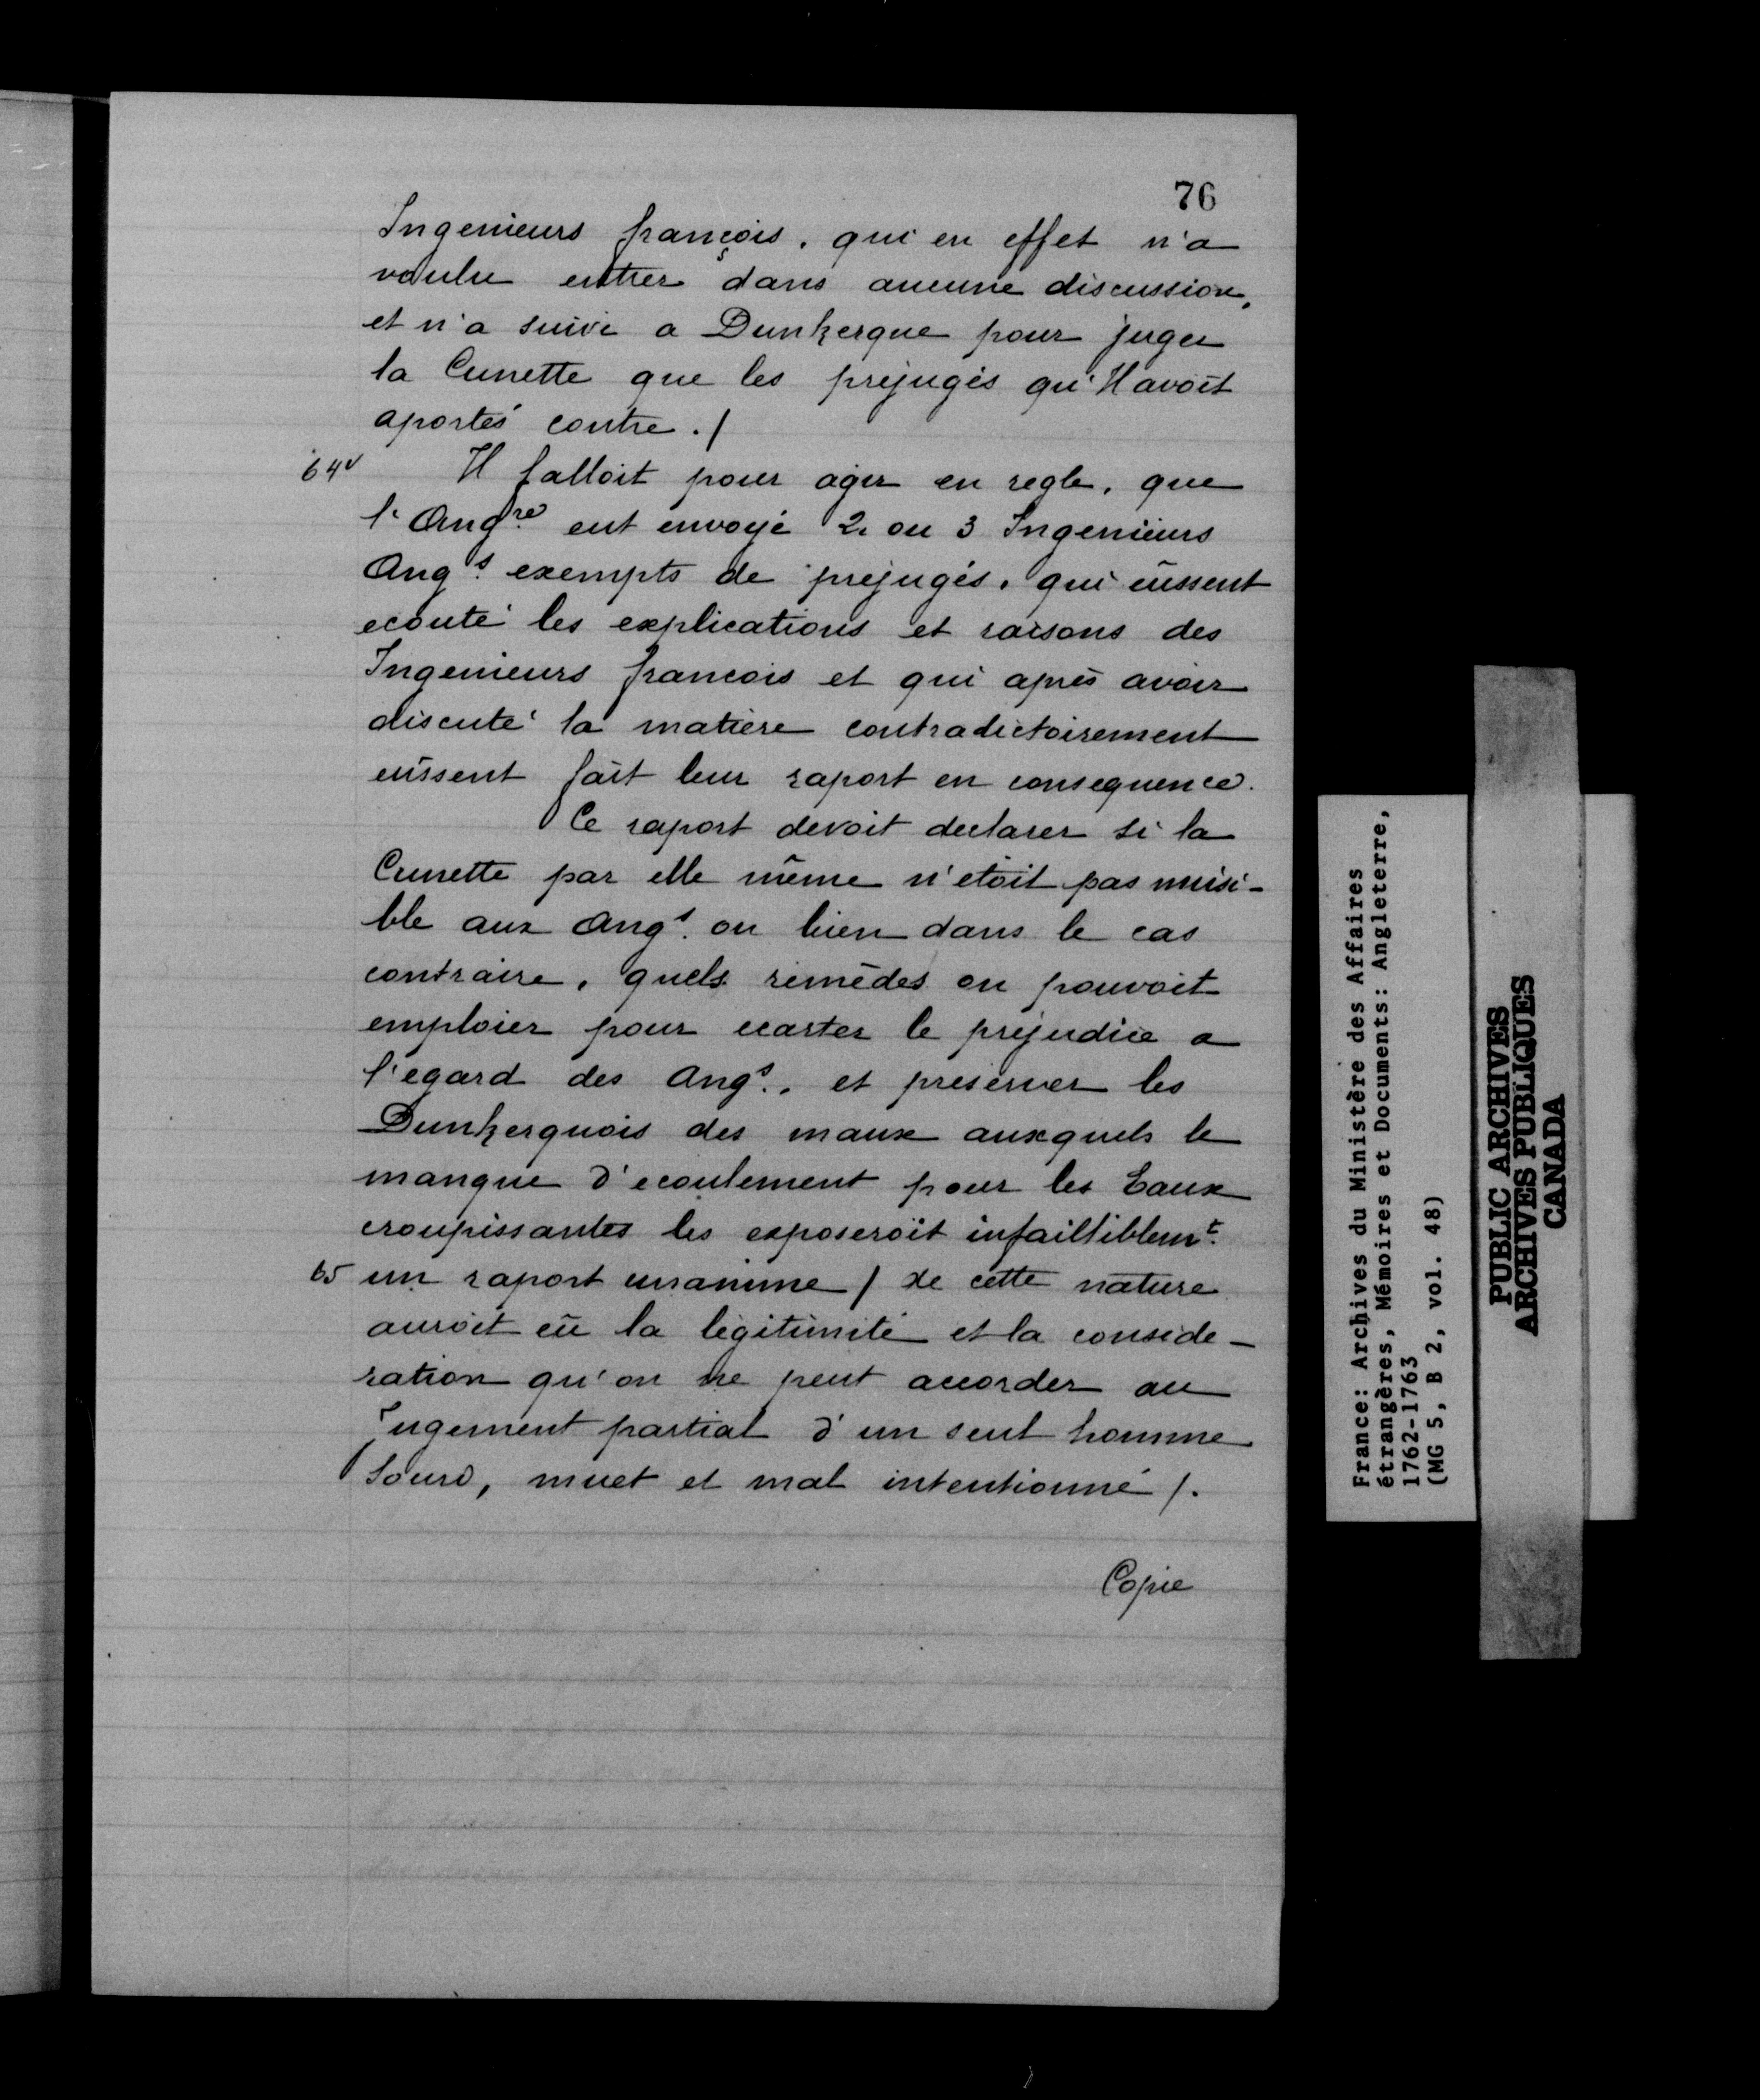 76
Ingenieurs françois, qui en effet n'a
voulu entrer dans aucune discussion,
et n'a suivi a Dunkerque pour juger
la Cunette que les préjugés qu'Il avoit
aportés contre./
64v Il falloit pour agir en regle, que
l'Angre eut envoyé 2 ou 3 Ingenieurs
Angs. exempts de préjugés, qui eussent
ecouté les explications et raisons des
Ingenieurs francois et qui après avoir
discuté la matière contradictoirement
eussent fait leur raport en consequence.
Ce raport devoit declarer si la
Cunette par elle même n'étoit pas nuisi-
ble aux Angs. ou bien dans le cas
contraire, quels remèdes on pouvoit
emploier pour ecarter le préjudice a
l'egard des Angs., et preserver les
Dunkerquois des maux auxquels le
manque d'ecoulement pour les Eaux
croupissantes les exposeroit infailliblemt.
65 un raport unanime / de cette nature
auroit eü la légitimité et la conside-
ration qu'on ne peut accorder au
Jugement partial d'un seul homme
Sourd, muet et mal intentionné /.
Copie
France: Archives du Ministère des Affaires
étrangères, Mémoires et Documents: Angleterre,
1762-1763
(MG 5, B 2, vol. 48)
PUBLIC ARCHIVES
ARCHIVES PUBLIQUES
CANADA